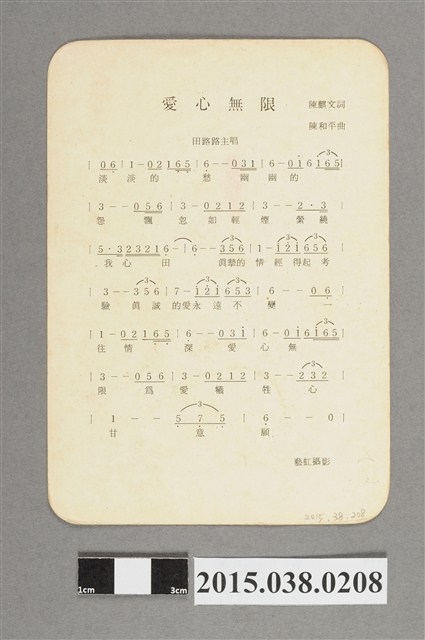 愛心無限
陳麒文詞
陳和平曲
田路路主唱
| 0 6 | 1 - 0 2 1 6 5 | 6 - - 0 3 1 | 6 - 0 i 6 i 6 5 |
淡 淡 的 愁 幽 幽 的
3 - - 0 5 6 | 3 - 0 2 1 2 | 3 - - 2 · 3 |
怨 飄 忽 如 輕 煙 縈 繞
| 5 · 3 2 3 3 2 1 6 - | 6 - - 3 5 6 | 1 - i 2 i 6 5 6 |
我 心 田 眞摯的 情 經 得起 考
| 3 - - 3 5 6 | 7 - i 2 i 6 5 3 | 6 - - 0 6 |
驗 眞 誠 的愛永 遠 不 變 一
| 1 - 0 2 1 6 5 | 6 - - 0 3 i | 6 - 0 i 6 i 6 5 |
往 情 深 愛 心 無
| 3 - - 0 5 6 | 3 - 0 2 1 2 | 3 - - 2 3 2 |
限 爲 愛 犧 牲 心
| 1 - - 5 7 5 | 6 - - 0 |
甘 意 願
藝虹攝影
2015.38.208
1cm 3cm
2015.038.0208